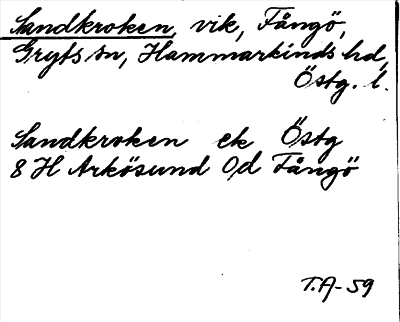 Sandkroken, vik, Fångö,
Gryts sn, Hammarkinds hd,
Östg. l.
Sandkroken ek Östg
8 H Arkösund 0d Fångö
T.A-59